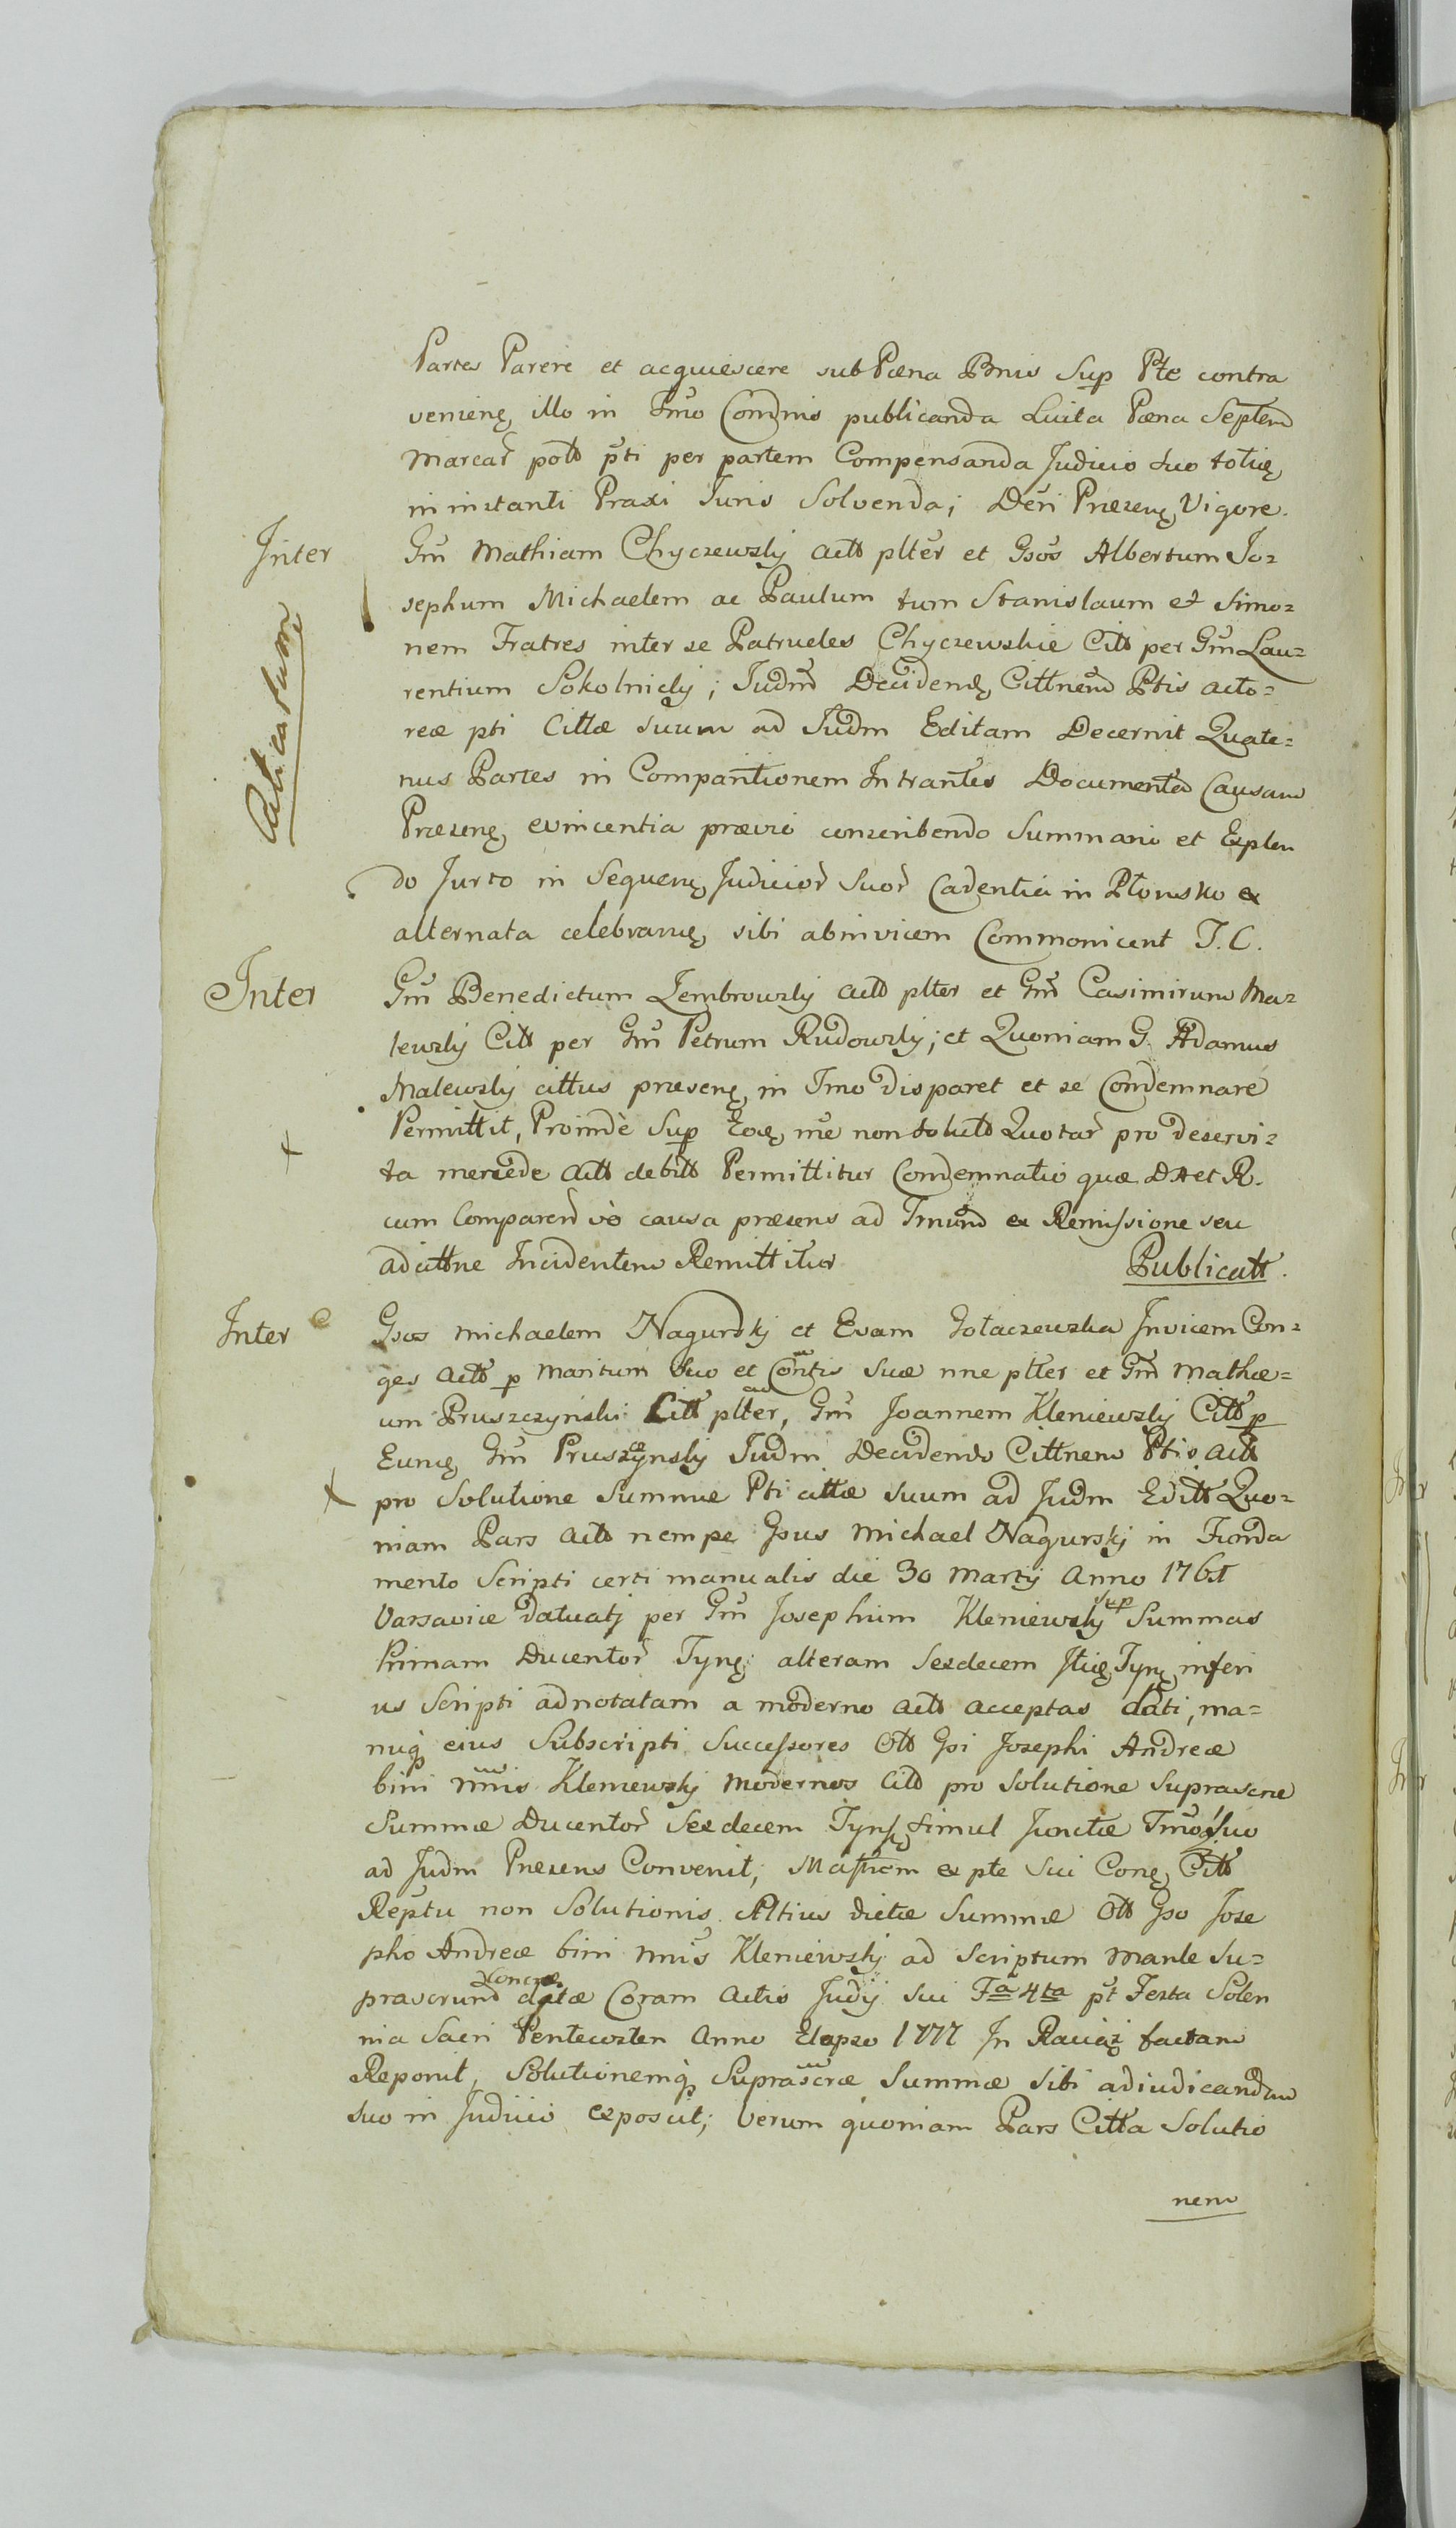 Partes Parere et acquiescere sub Pœna Bnis Sup Pte contra
venienę illo in Tmo Condnis publicanda Luita Pœna Septem
Marcar̃ pold pti per partem Compensanda Judicio suo totię
in instanti Praxi Juris Solvenda; Deri Præsenę Vigore.
Inter Gm̃ Mathiam Chyczewskj actt plter et Gsos Albertum Jo=
sephum Michaelem ac Paulum tum Stanislaum et Simo=
nem Fratres inter se Patrueles Chyczewskie Citt per Gm̃ Lau=
rentium Sokolnickj; Judm Decidendę Cittnem Ptis acto=
reæ pti Cittæ suum ad Judm Editam Decernit Quate=
nus Partes in Comparitionem Intrantes Documenta Causam
Præsenę evincentia prævie conscribendo Summarie et Explen
do Jurto in Sequenę Judicior̃ Suor̃ Cadentia in Płonsko ex
alternata celebranę sibi abinvicem Commonicent J. C.
Publicatum
Inter Gm̃ Benedictum Zembrowskj actt plter et Gm̃ Casimirum Ma=
lewskj Citt per Gm̃ Petrum Rudowskj; et Quoniam G. Adamus
Malewskj cittus præsenę in Tmo disparet et se Condemnare
Permittit, Proinde Sup Eoę me non solutt Quotar̃ pro deservi=
ta mercede actt debitt Permittitur Condemnatio quæ DA et R.
cum Comparend vo causa præsens ad Tmum ex Remissione seu
ad cittne Incidentem Remittitur Publicatt.
Inter Gsos Michaelem Nagurskj et Evam Gołaczewska Invicem Con=
ges actt p maritum suo et Contis suæ nne plter et Gm̃ Mathæ=
um Pruszczynski Citt plter, Gm̃ Joannem Kleniewskj Citt p
Eunę Gm̃ Pruszczynskj Judm Decidendo Cittnem Ptis actt
pro Solutione Summæ Pti cittæ suum ad Judm Editt Quo=
niam Pars actt nempe Gsus Michael Nagurskj in Funda
mento Scripti certi manualis die 30 Martij Anno 176
Varsaviæ datuatj per Gm̃ Josephum Kleniewskj sup Summas
Primam Ducentor̃ Tynę alteram Sexdecem Itię Tynę inferi
us Scripti adnotatam a moderno actt acceptas dati, ma=
nuq eius Subscripti Successores Ott Gsi Josephi Andreæ
bini nnis Kleniewskj modernos Citt pro Solutione Suprascræ
Summæ Ducentor̃ Sexdecem Tynf Simul Junctæ Tmo suo
ad Judm Præsens Convenit; Mastrem ex pte Sui Conę Citt
Reptu non Solutionis Altius dictæ Summæ Ott Gso Jose
pho Andreæ bini nnis Kleniewskj ad Scriptum Manle Su=
prascrum Concræ datæ Coram Actis Judij Sui Fa 4ta pt Festa Solen
nia Sacri Pentecosten Anno Elapso 1777 In Raciąż factam
Reponit, Solutionemq Suprascræ Summæ Sibi adiudicandam
suo in Judicio exposcit; Verum quoniam Pars Citta Solutio
nem